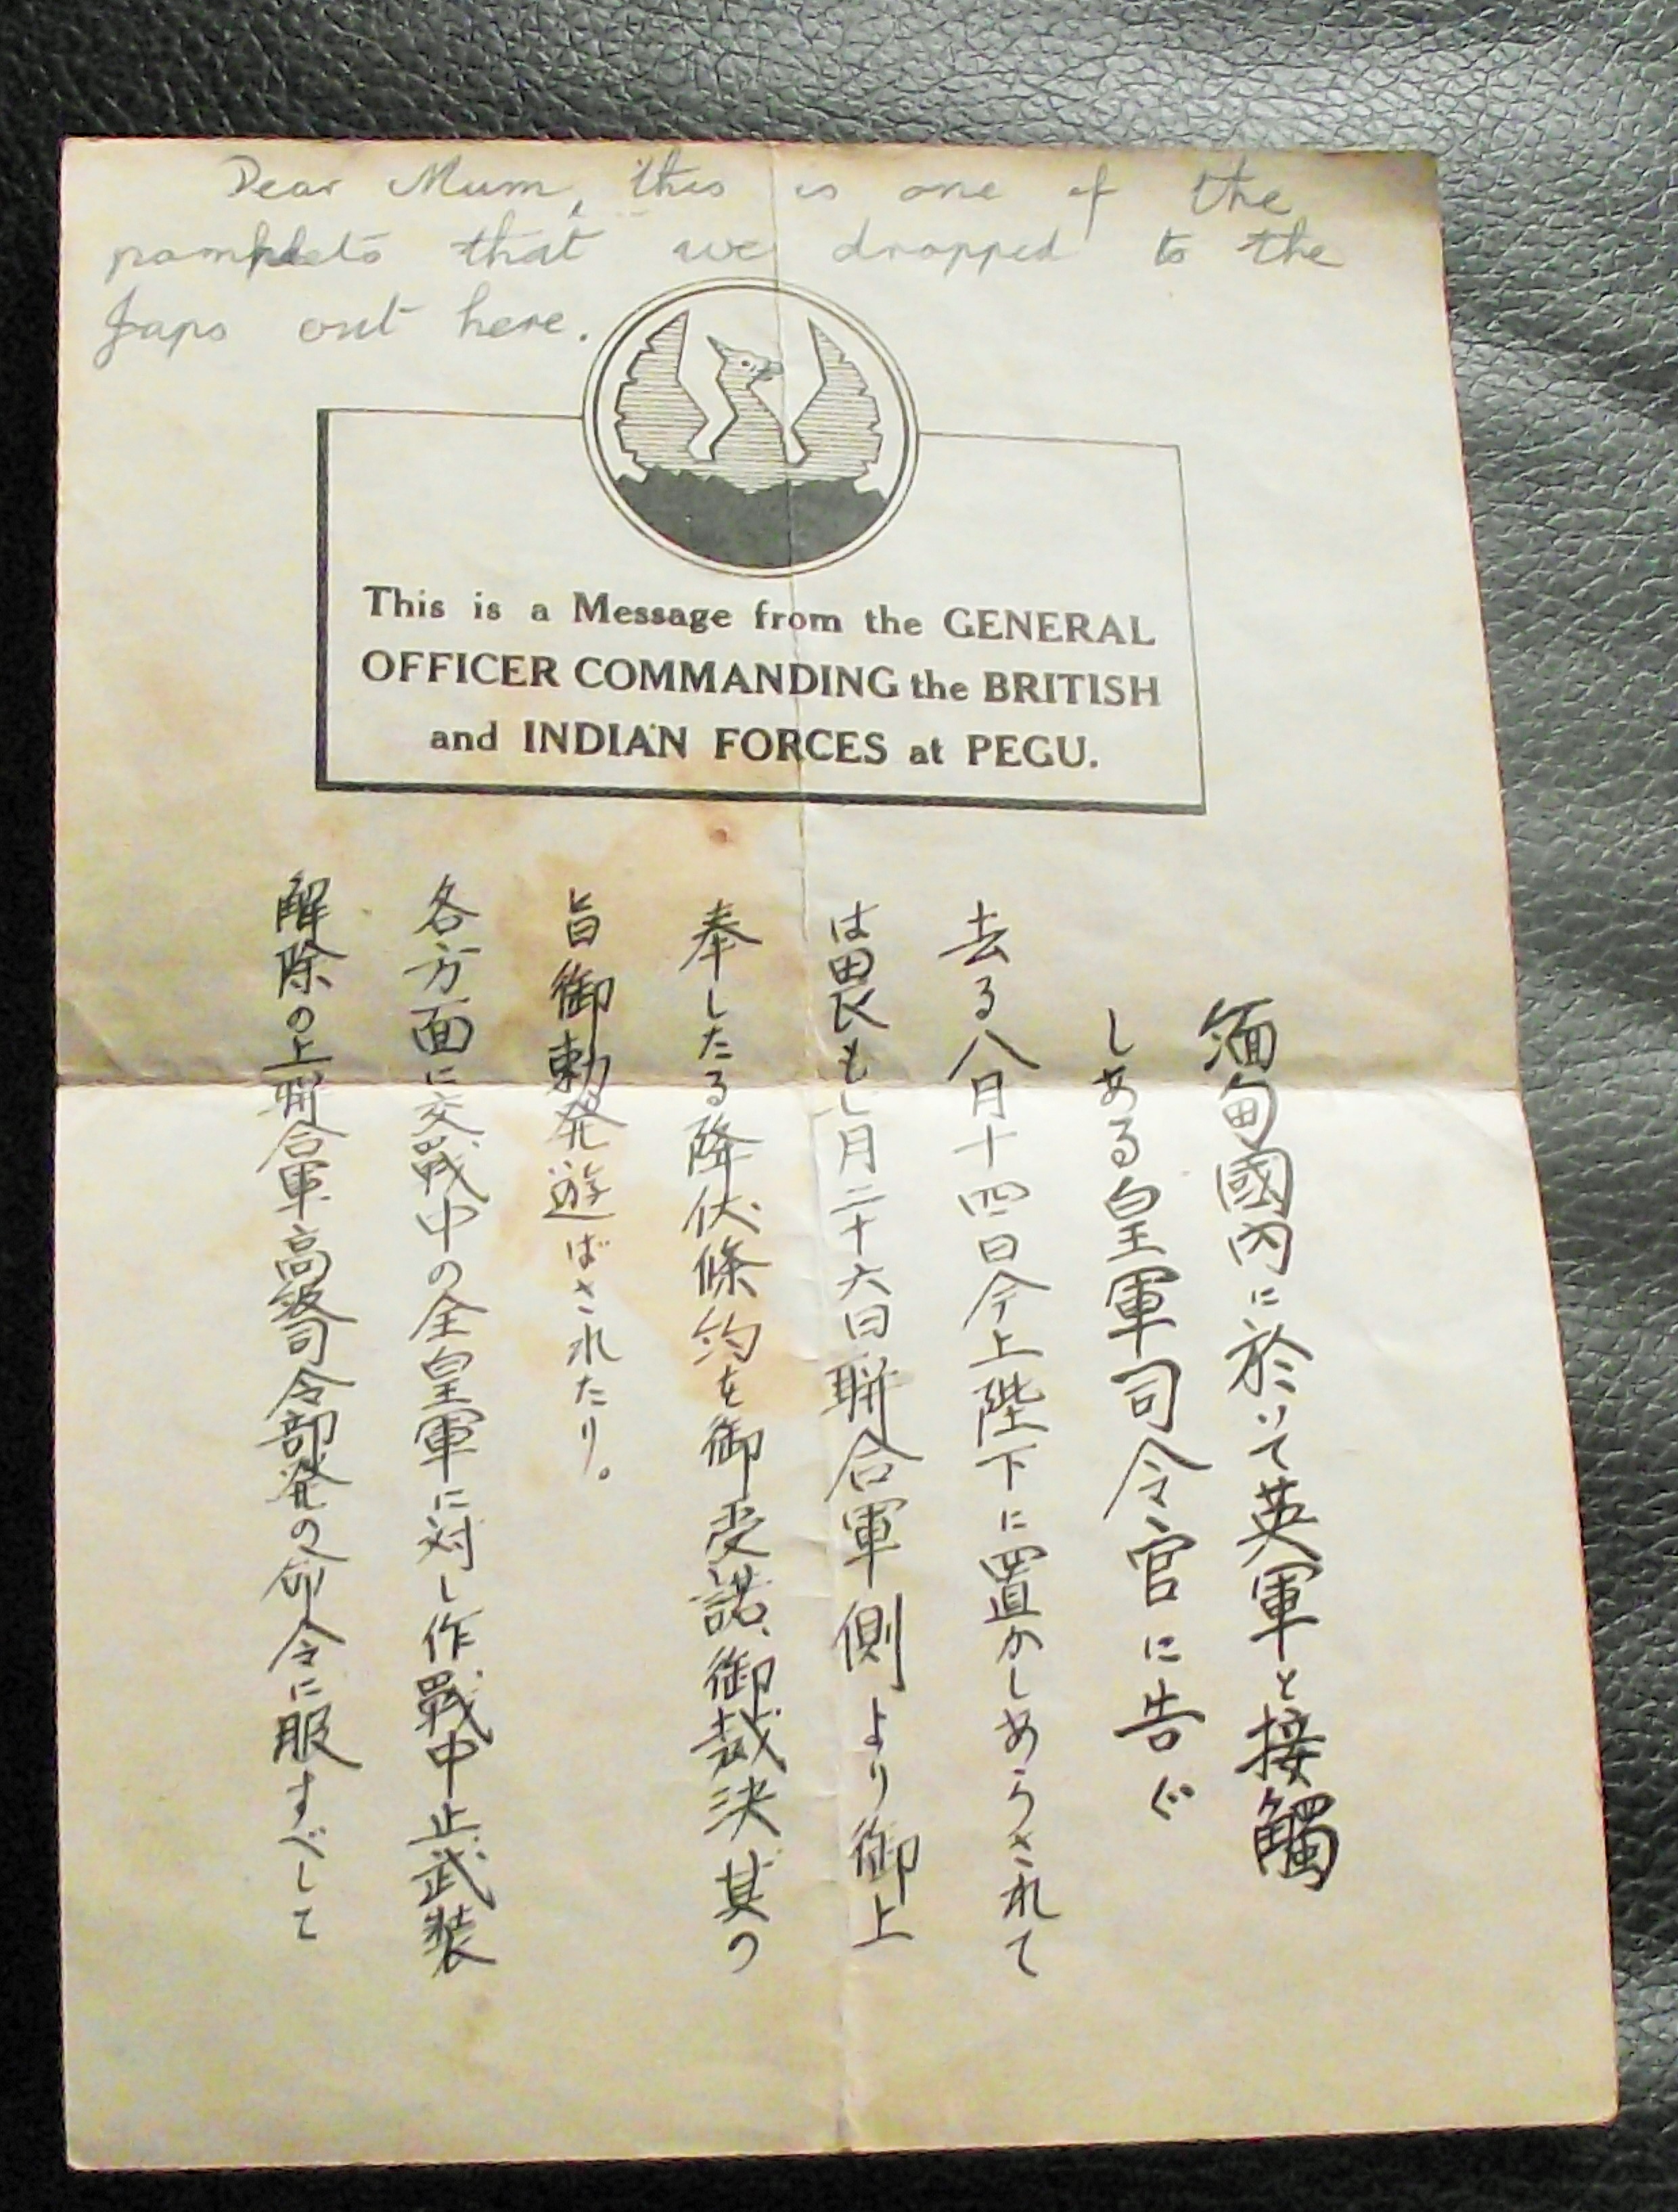 Dear Mum, this is one of the
pamphlets that we dropped to the
Japs out here.
This is a Message from the GENERAL
OFFICER COMMANDING the BRITISH
and INDIAN FORCES at PEGU.
緬甸國内に於いて英軍と接觸
しある皇軍司令官に告ぐ
去る八月十四日今上陛下に置かしあらされて
は畏もし月二十六日聯合軍側より御上
奉したる降伏條約を御受諾、御裁決其の
旨御勅発遊ばされたり。
各方面に交戰中の全皇軍に対し作戰中止武装
解除の上聯合軍高級司令部発の命令に服すべして